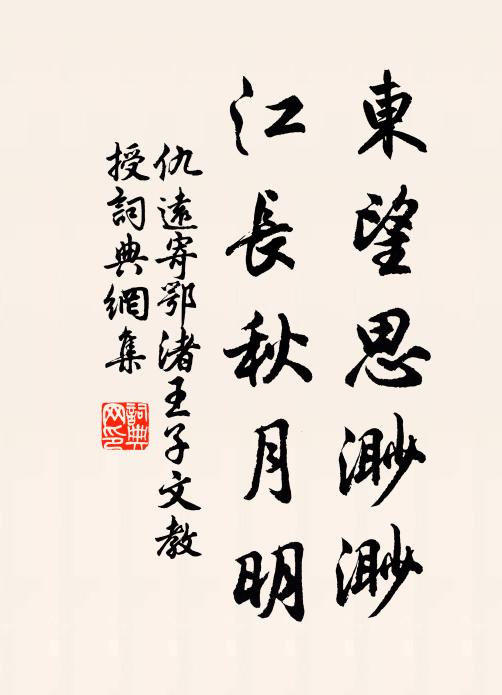 東望思渺渺
江長秋月明
仇遠寄鄂渚王子文教
授詞典網集
詞典网印